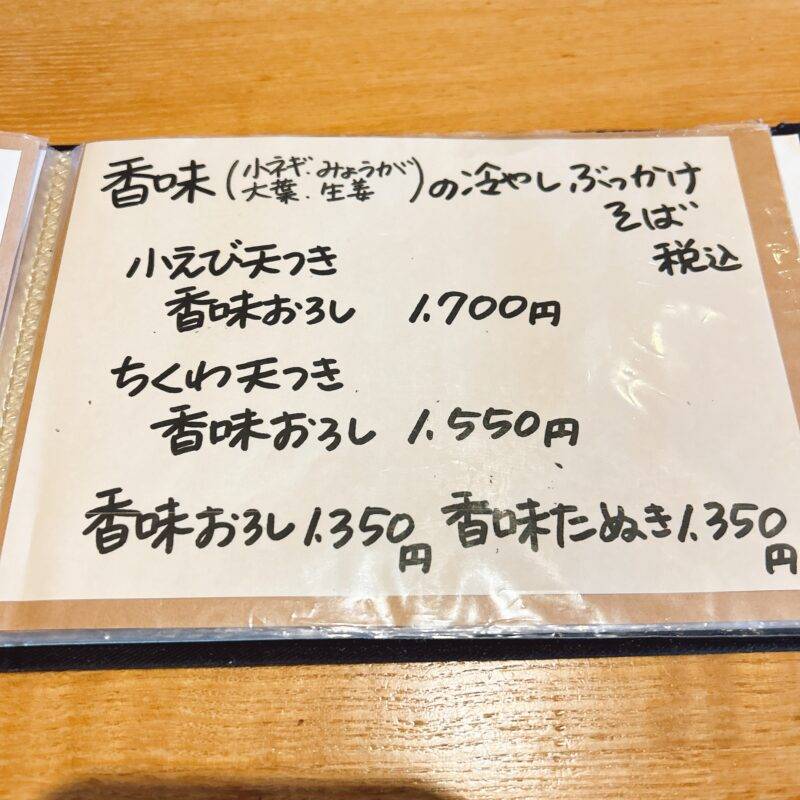 香味(小ネギ.みょうが 大葉.生姜)の冷やしぶっかけ
そば
税込
小えび天つき
香味おろし 1.700円
ちくわ天つき
香味おろし 1.550円
香味おろし1.350円 香味たぬき1.350円